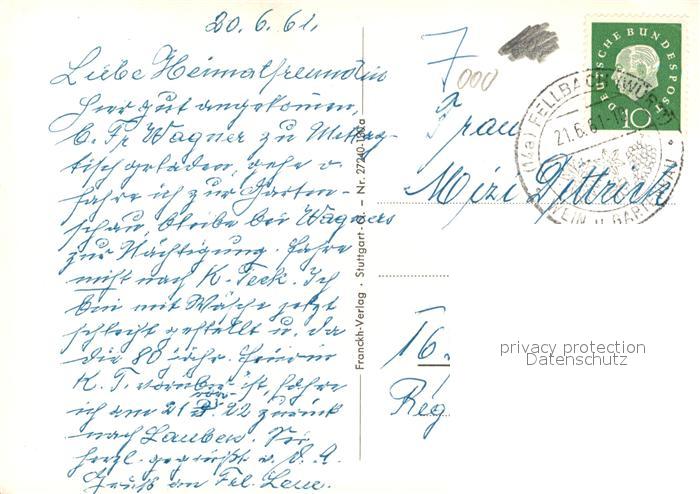 20. 6. 61.
Liebe Heimatfreundin
Hier gut angekommen,
b. Fr. Wagner zu Mittag-
tisch geladen, gehe o.
fahre ich zur Garten-
schau, bleibe bei Wagners
zur Nächtigung. Fahre
nicht nach K. Teck. Ich
bin mit Wäsche jetzt
schlecht gestellt u. da
die 80 jähr. Feier in
K. T. vorüber ist, fahre
ich am 21 oder 22 zurück
nach Lauben. Sei
herzl. gegrüßt v. d. A.
Gruß an Frl. Lene.
Franckh-Verlag · Stuttgart-O. – Nr. 27240-1302a
7
000
Frau
Mizi Dittrich
16.
Reg
DEUTSCHE BUNDESPOST
10
(14a) FELLBACH (WÜRTT)
21.6.61-10
WEIN u. GARTENBAU
privacy protection
Datenschutz